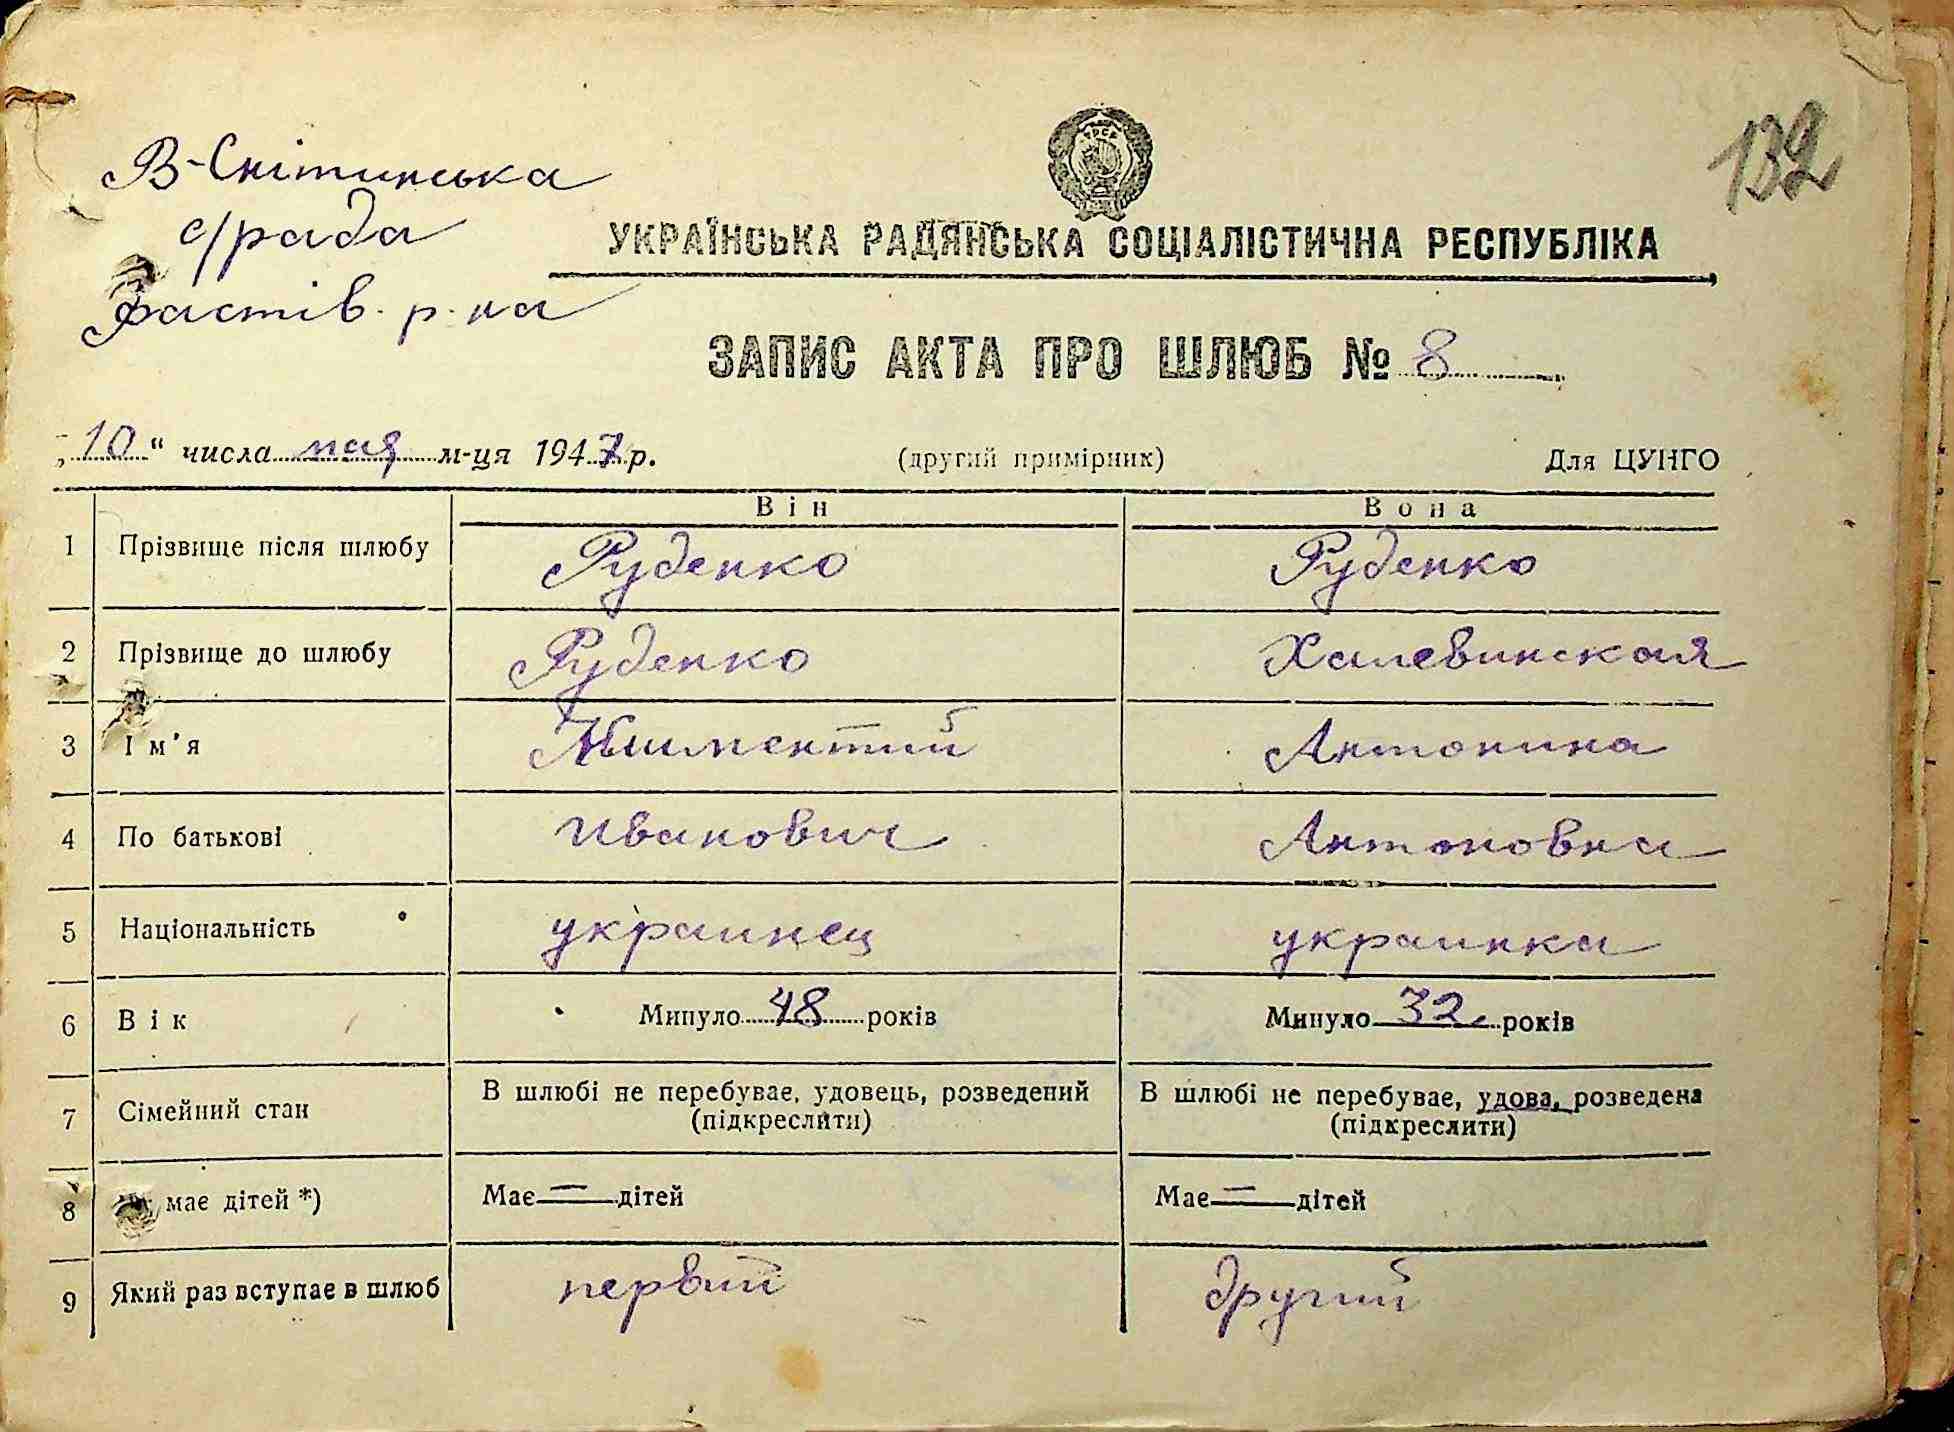 132
В-Снітинська
с/рада
Фастів. р-на
УКРАЇНСЬКА РАДЯНСЬКА СОЦІАЛІСТИЧНА РЕСПУБЛІКА
ЗАПИС АКТА ПРО ШЛЮБ № 8
„10“ числа мая м-ця 1947 р. (другий примірник) Для ЦУНГО
Він Вона
1 Прізвище після шлюбу Руденко Руденко
2 Прізвище до шлюбу Руденко Халевинская
3 Ім’я Климентий Антонина
4 По батькові Иванович Антоновна
5 Національність украинец украинка
6 Вік Минуло 48 років Минуло 32 років
7 Сімейний стан В шлюбі не перебуває, удовець, розведений В шлюбі не перебуває, удова, розведена
(підкреслити) (підкреслити)
8 має дітей *) Має — дітей Має — дітей
9 Який раз вступає в шлюб первий другий